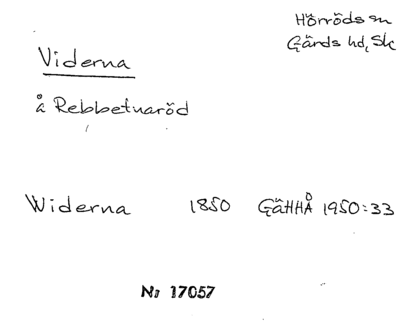 Hörröds sn
Gärds hd, Sk
Viderna
å Rebbetuaröd
Widerna 1850 GäHHÅ 1950:33
Nr 17057